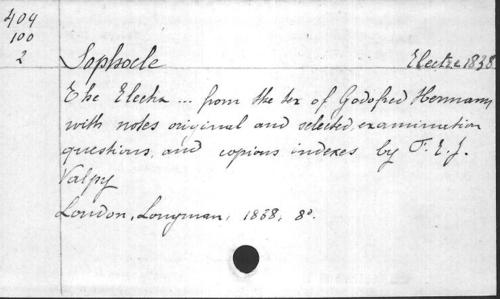 404
100
2
Sophocle Electra 1838
The Electra ... from the tex of Godofred Hermann,
with notes original and selected, examination
questions, and copious indexes by F. E. J.
Valpy
London, Longman, 1838, 8°.